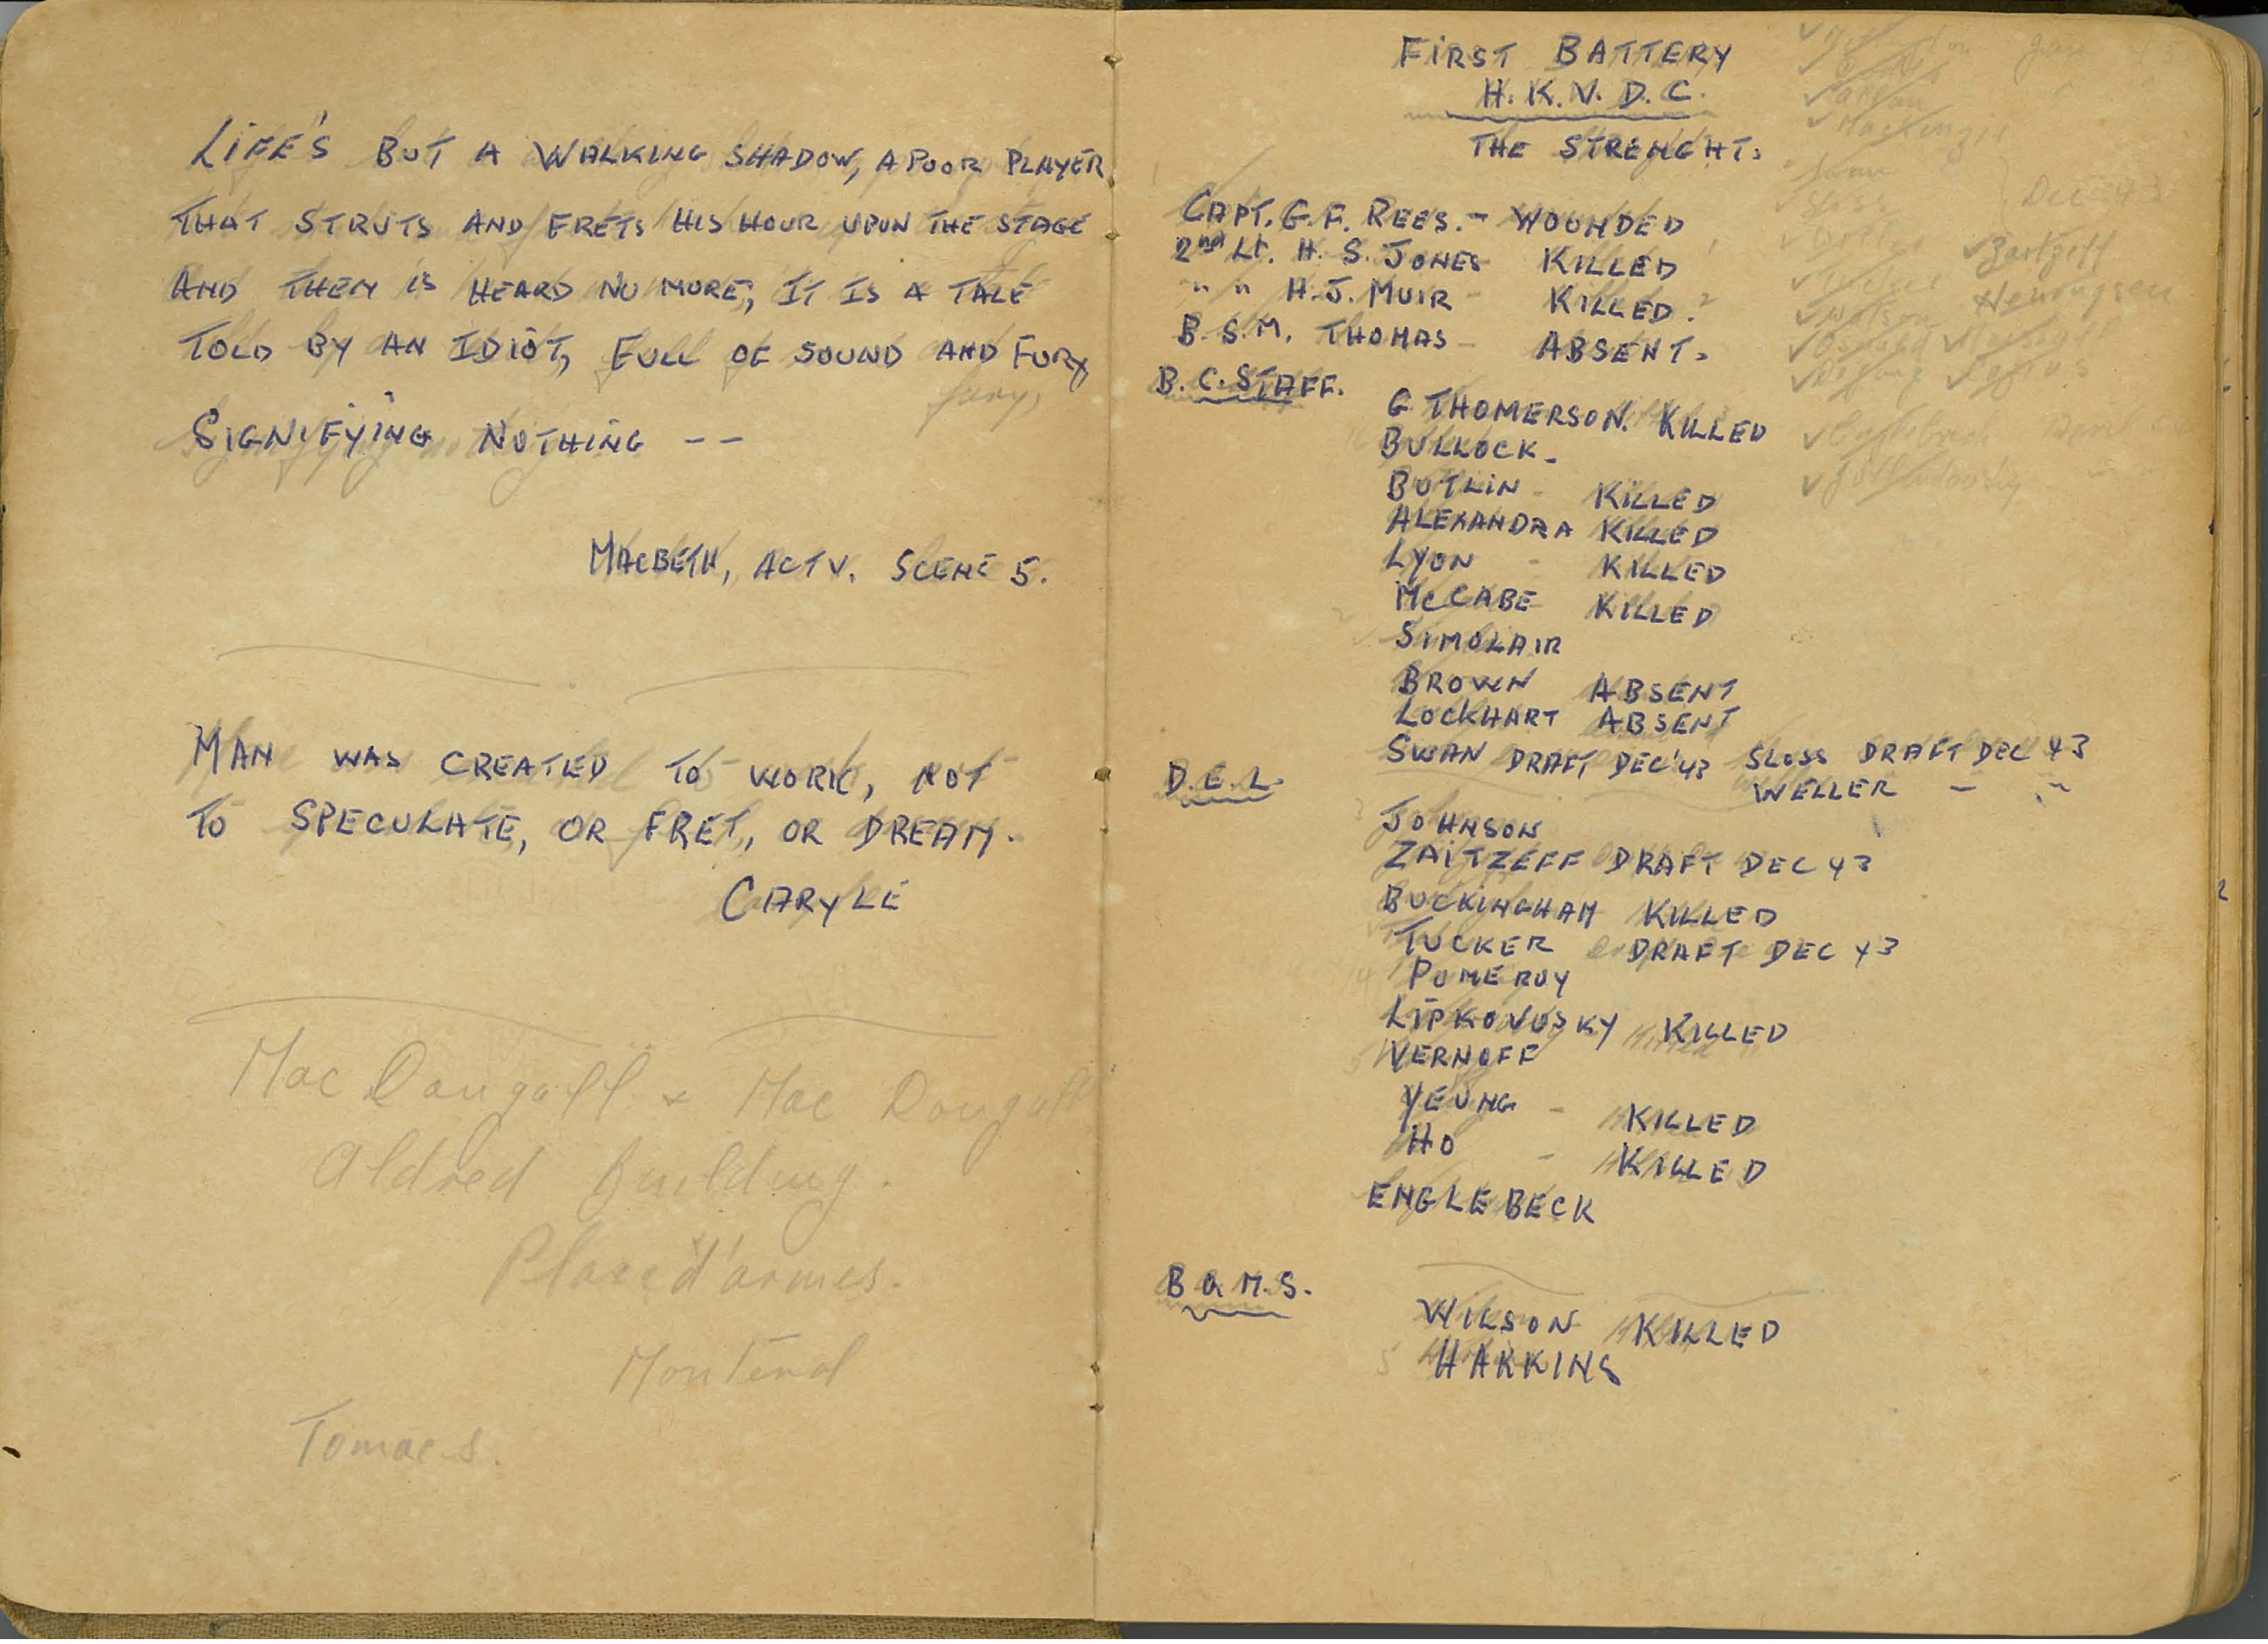 LIFE'S BUT A WALKING SHADOW, A POOR PLAYER
THAT STRUTS AND FRETS HIS HOUR UPON THE STAGE
AND THEN IS HEARD NO MORE; IT IS A TALE
TOLD BY AN IDIOT, FULL OF SOUND AND FURY
fury,
SIGNIFYING NOTHING --
MACBETH, ACT V. SCENE 5.
MAN WAS CREATED TO WORK, NOT
TO SPECULATE, OR FRET, OR DREAM.
CARYLE
Mac Dougall & Mac Dougall
Aldred Building.
Place d'armes.
FIRST BATTERY
H.K.V.D.C.
THE STRENGHT.
CAPT. G. F. REES. - WOUNDED
2nd Lt. H. S. JONES KILLED
" " H. J. MUIR - KILLED ?
B.S.M. THOMAS - ABSENT.
B.C. STAFF.
G THOMERSON. KILLED
BULLOCK -
BUTLIN - KILLED
ALEXANDRA KILLED
LYON - KILLED
McCABE KILLED
SIMCLAIR
BROWN ABSENT
LOCKHART ABSENT
SWAN DRAFT DEC '43 SLOSS DRAFT DEC 43
WELLER - "
D.E.L.
JOHNSON
ZAITZEFF DRAFT DEC 43
BUCKINGHAM KILLED
TUCKER DRAFT DEC 43
POMEROY
LIPKOVOSKY KILLED
VERNOFF
YEUNG - KILLED
HO - KILLED
ENGLEBECK
B Q.M.S.
WILSON KILLED
HARKINS
Mackenzie
Sloss
Dec 43
Zaitzeff
Watson